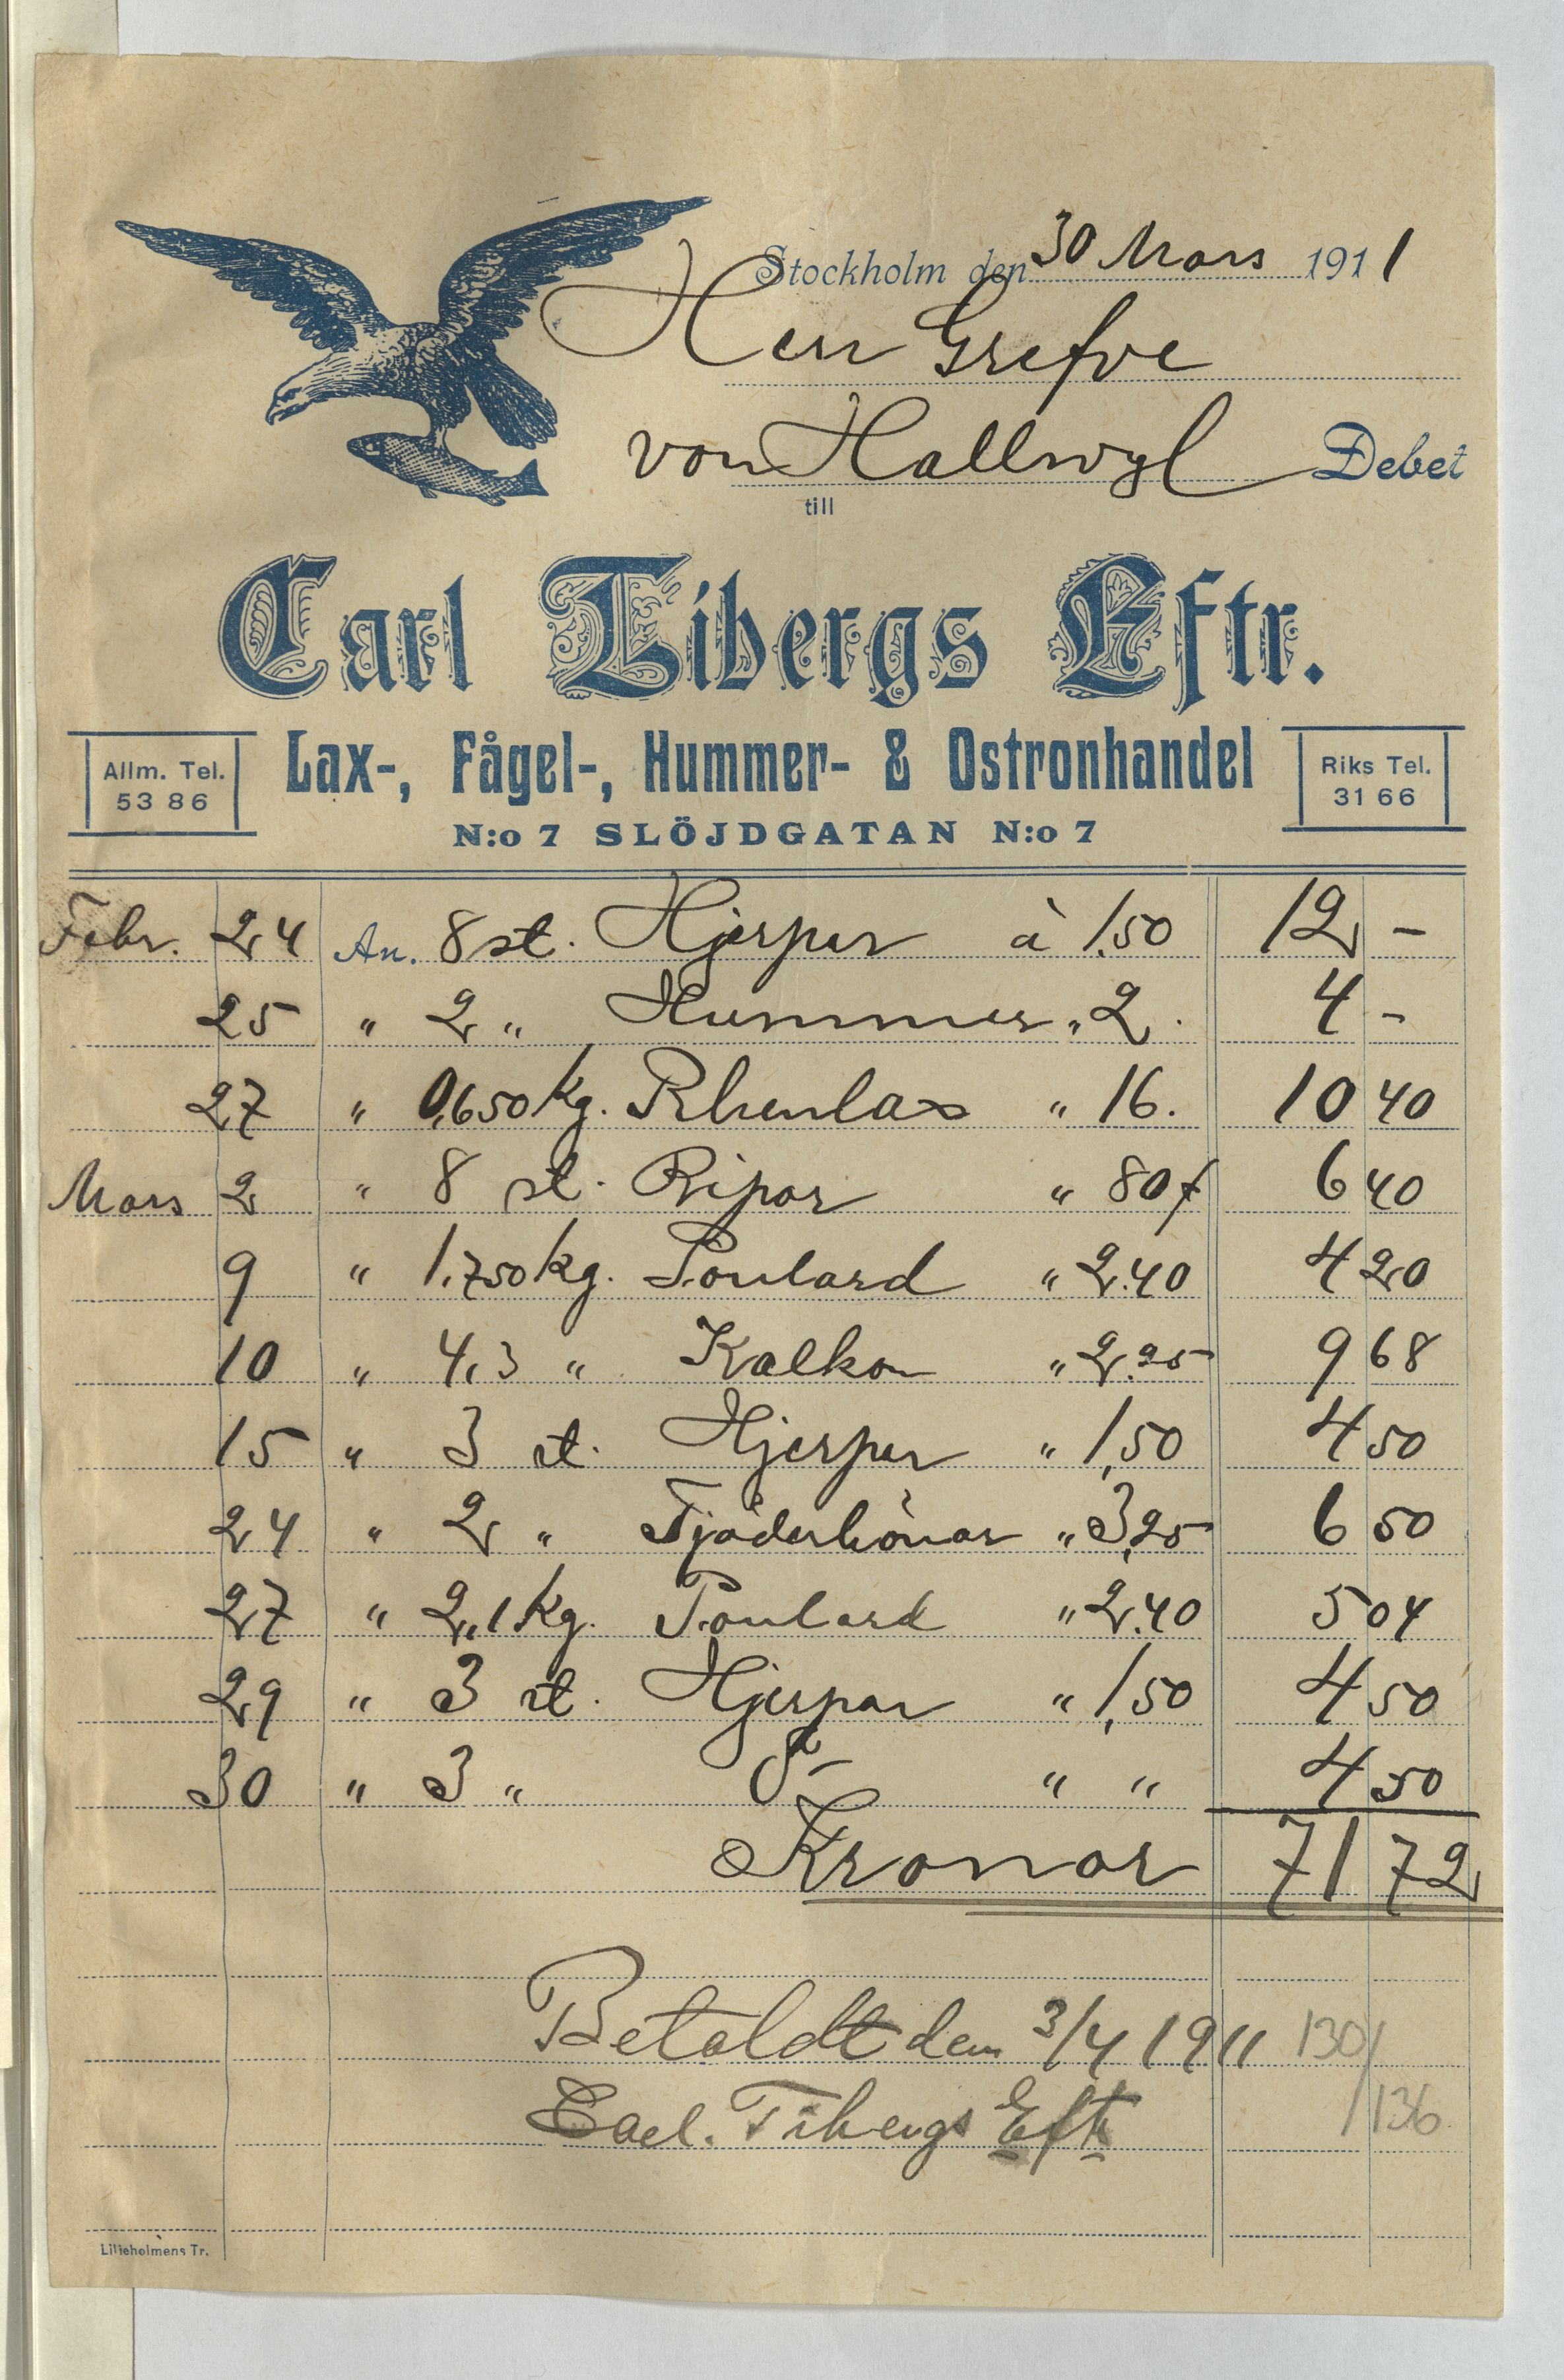 Stockholm den 30 Mars 1911
Herr Grefve
von Hallwyl Debet
till
Carl Tibergs Eftr.
Lax-, Fågel-, Hummer- & Ostronhandel
Allm. Tel. 53 86
Riks Tel. 31 66
N:o 7 SLÖJDGATAN N:o 7
Febr. 24 An. 8 st. Hjerpar à 1.50 12 -
25 " 2 " Hummer " 2. 4 -
27 " 0,650 kg. Rhenlax " 16. 10 40
Mars 2 " 8 st. Ripor " 80 6 40
9 " 1.750 kg. Poulard " 2.40 4 20
10 " 4,3 " Kalkon " 2.25 9 68
15 " 3 st. Hjerpar " 1,50 4 50
24 " 2 " Tjäderhönor " 3,25 6 50
27 " 2,1 kg. Poulard " 2.40 5 04
29 " 3 st. Hjerpar " 1,50 4 50
30 " 3 " " " 4 50
Kronor 71 72
Betaldt den 3/4 1911 130/
Carl. Tibergs Eftr /136
Liljeholmens Tr.